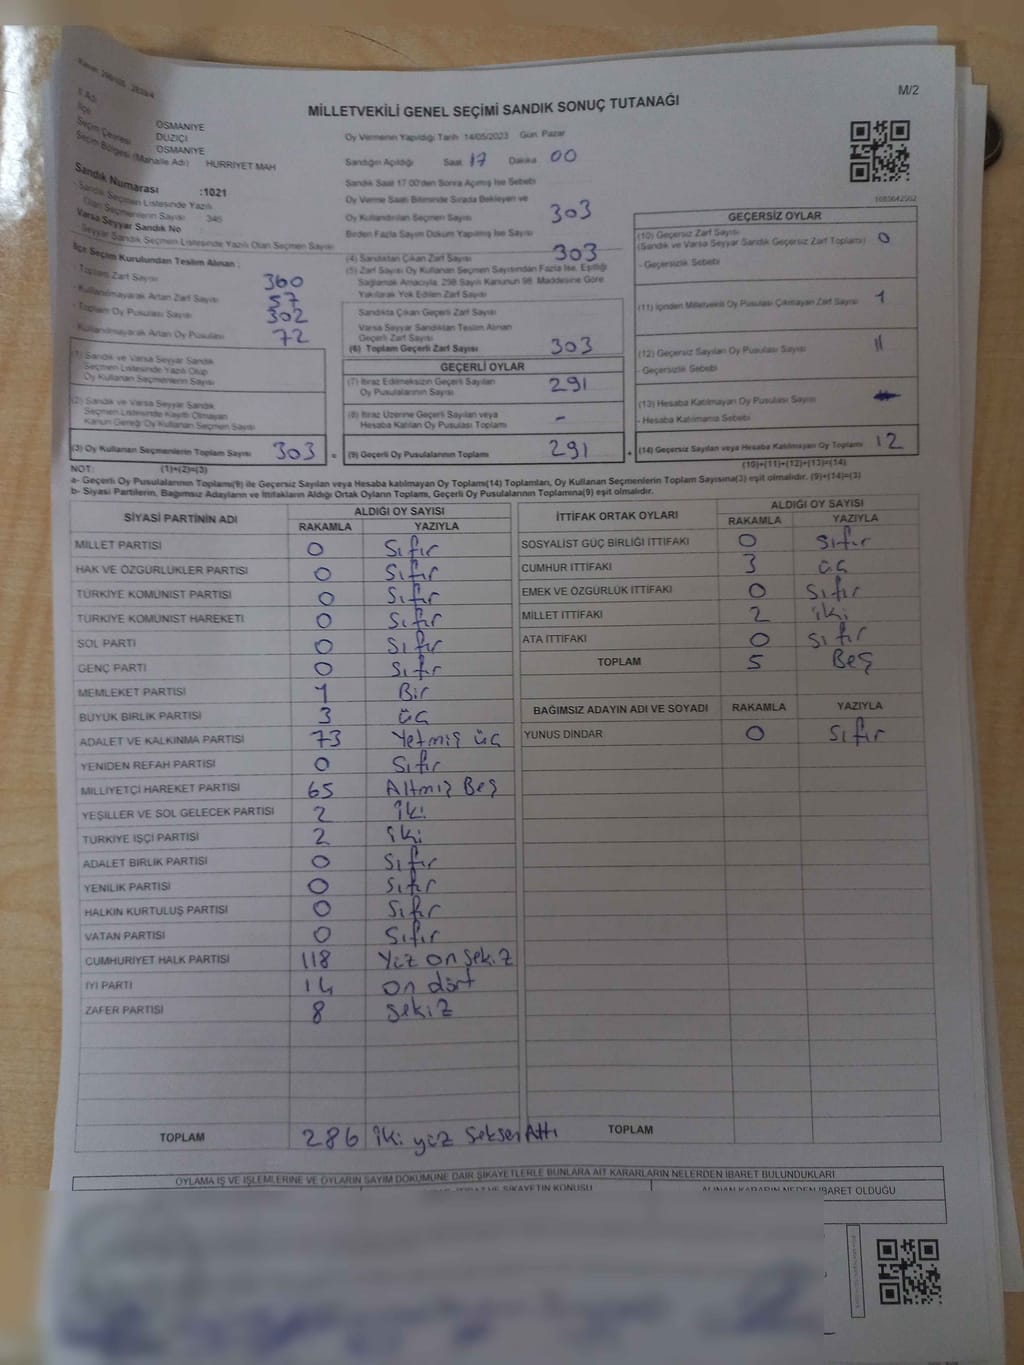 M/2
MİLLETVEKİLİ GENEL SEÇİMİ SANDIK SONUÇ TUTANAĞI
İl Adı OSMANİYE
İlçe DÜZİÇİ
Seçim Çevresi OSMANİYE
Seçim Bölgesi (Mahalle Adı) HÜRRİYET MAH
Sandık Numarası :1021
- Sandık Seçmen Listesinde Yazılı
Olan Seçmenlerin Sayısı 345
Varsa Seyyar Sandık No
Seyyar Sandık Seçmen Listesinde Yazılı Olan Seçmen Sayısı
İlçe Seçim Kurulundan Teslim Alınan :
- Toplam Zarf Sayısı 360
- Kullanılmayarak Artan Zarf Sayısı 57
- Toplam Oy Pusulası Sayısı 302
- Kullanılmayarak Artan Oy Pusulası 72
(1) Sandık ve Varsa Seyyar Sandık
Seçmen Listesinde Yazılı Olup
Oy Kullanan Seçmenlerin Sayısı
(2) Sandık ve Varsa Seyyar Sandık
Seçmen Listesinde Kayıtlı Olmayan
Kanun Gereği Oy Kullanan Seçmen Sayısı
(3) Oy Kullanan Seçmenlerin Toplam Sayısı 303 =
(1)+(2)=(3)
Oy Vermenin Yapıldığı Tarih 14/05/2023 Gün Pazar
Sandığın Açıldığı Saat 17 Dakika 00
Sandık Saat 17.00'den Sonra Açılmış İse Sebebi
Oy Verme Saati Bitiminde Sırada Bekleyen ve
Oy Kullandırılan Seçmen Sayısı 303
Birden Fazla Sayım Döküm Yapılmış İse Sayısı
(4) Sandıktan Çıkan Zarf Sayısı 303
(5) Zarf Sayısı Oy Kullanan Seçmen Sayısından Fazla İse, Eşitliği
Sağlamak Amacıyla, 298 Sayılı Kanunun 98. Maddesine Göre
Yakılarak Yok Edilen Zarf Sayısı
Sandıkta Çıkan Geçerli Zarf Sayısı
Varsa Seyyar Sandıktan Teslim Alınan
Geçerli Zarf Sayısı
(6) Toplam Geçerli Zarf Sayısı 303
GEÇERLİ OYLAR
(7) İtiraz Edilmeksizin Geçerli Sayılan
Oy Pusulalarının Sayısı 291
(8) İtiraz Üzerine Geçerli Sayılan veya
Hesaba Katılan Oy Pusulası Toplamı -
(9) Geçerli Oy Pusulalarının Toplamı 291 +
GEÇERSİZ OYLAR
(10) Geçersiz Zarf Sayısı
(Sandık ve Varsa Seyyar Sandık Geçersiz Zarf Toplamı) 0
- Geçersizlik Sebebi
(11) İçinden Milletvekili Oy Pusulası Çıkmayan Zarf Sayısı 1
(12) Geçersiz Sayılan Oy Pusulası Sayısı 11
- Geçersizlik Sebebi
(13) Hesaba Katılmayan Oy Pusulası Sayısı
- Hesaba Katılmama Sebebi
(14) Geçersiz Sayılan veya Hesaba Katılmayan Oy Toplamı 12
(10)+(11)+(12)+(13)=(14)
NOT:
a- Geçerli Oy Pusulalarının Toplamı(9) ile Geçersiz Sayılan veya Hesaba katılmayan Oy Toplamı(14) Toplamları, Oy Kullanan Seçmenlerin Toplam Sayısına(3) eşit olmalıdır. (9)+(14)=(3)
b- Siyasi Partilerin, Bağımsız Adayların ve İttifakların Aldığı Ortak Oyların Toplamı, Geçerli Oy Pusulalarının Toplamına(9) eşit olmalıdır.
SİYASİ PARTİNİN ADI ALDIĞI OY SAYISI
RAKAMLA YAZIYLA
MİLLET PARTİSİ 0 Sıfır
HAK VE ÖZGÜRLÜKLER PARTİSİ 0 Sıfır
TÜRKİYE KOMÜNİST PARTİSİ 0 Sıfır
TÜRKİYE KOMÜNİST HAREKETİ 0 Sıfır
SOL PARTİ 0 Sıfır
GENÇ PARTİ 0 Sıfır
MEMLEKET PARTİSİ 1 Bir
BÜYÜK BİRLİK PARTİSİ 3 üç
ADALET VE KALKINMA PARTİSİ 73 Yetmiş üç
YENİDEN REFAH PARTİSİ 0 Sıfır
MİLLİYETÇİ HAREKET PARTİSİ 65 Altmış Beş
YEŞİLLER VE SOL GELECEK PARTİSİ 2 iki
TÜRKİYE İŞÇİ PARTİSİ 2 iki
ADALET BİRLİK PARTİSİ 0 Sıfır
YENİLİK PARTİSİ 0 Sıfır
HALKIN KURTULUŞ PARTİSİ 0 Sıfır
VATAN PARTİSİ 0 Sıfır
CUMHURİYET HALK PARTİSİ 118 Yüz on sekiz
İYİ PARTİ 14 on dört
ZAFER PARTİSİ 8 sekiz
TOPLAM 286 İki yüz Seksen Altı
İTTİFAK ORTAK OYLARI ALDIĞI OY SAYISI
RAKAMLA YAZIYLA
SOSYALİST GÜÇ BİRLİĞİ İTTİFAKI 0 Sıfır
CUMHUR İTTİFAKI 3 üç
EMEK VE ÖZGÜRLÜK İTTİFAKI 0 Sıfır
MİLLET İTTİFAKI 2 iki
ATA İTTİFAKI 0 Sıfır
TOPLAM 5 Beş
BAĞIMSIZ ADAYIN ADI VE SOYADI RAKAMLA YAZIYLA
YUNUS DİNDAR 0 Sıfır
TOPLAM
OYLAMA İŞ VE İŞLEMLERİNE VE OYLARIN SAYIM DÖKÜMÜNE DAİR ŞİKAYETLERLE BUNLARA AİT KARARLARIN NELERDEN İBARET BULUNDUKLARI
İTİRAZ VE ŞİKAYETİN KONUSU ALINAN KARARIN NEDEN İBARET OLDUĞU